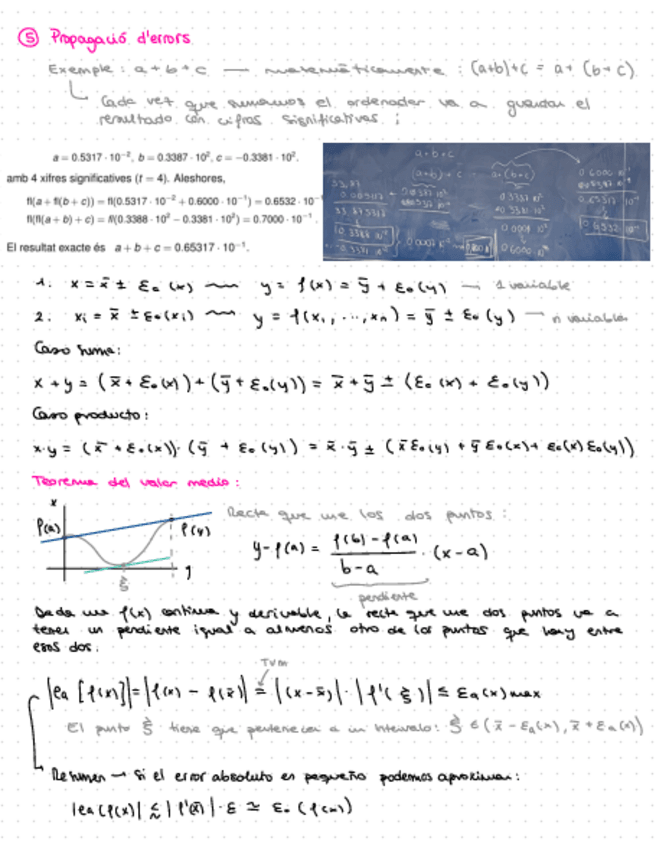 ⑤ Propagació d'errors
Exemple : a + b + c — matemàticamente : (a+b)+c = a+ (b+c)
Cada vez que sumamos el ordenador va a guardar el
resultado con cifras significativas ;
a = 0.5317 · 10⁻², b = 0.3387 · 10², c = −0.3381 · 10².
amb 4 xifres significatives (t = 4). Aleshores,
fl(a + fl(b + c)) = fl(0.5317 · 10⁻² + 0.6000 · 10⁻¹) = 0.6532 · 10⁻¹
fl(fl(a + b) + c) = fl(0.3388 · 10² − 0.3381 · 10²) = 0.7000 · 10⁻¹.
El resultat exacte és a + b + c = 0.65317 · 10⁻¹.
a+b+c
(a+b)+c
a+(b+c)
1. x = x̄ ± εₐ(x) y = f(x) = ȳ + εₐ(y) → 1 variable
2. xᵢ = x̄ ± εₐ(xᵢ) y = f(x₁, ..., xₙ) = ȳ ± εₐ(y) → n variables
Caso suma:
x + y = (x̄ + εₐ(x)) + (ȳ + εₐ(y)) = x̄ + ȳ ± (εₐ(x) + εₐ(y))
Caso producto:
x·y = (x̄ + εₐ(x))·(ȳ + εₐ(y)) = x̄·ȳ ± (x̄ εₐ(y) + ȳ εₐ(x) + εₐ(x) εₐ(y))
Teorema del valor medio:
x
f(a)
f(y)
ξ
y
Recta que une los dos puntos :
y - f(a) = f(b) - f(a) / b - a · (x - a)
pendiente
Dada una f(x) continua y derivable, la recta que une dos puntos va a
tener un pendiente igual a almenos otro de los puntos que hay entre
esos dos.
TVM
|ea [f(x)]| = |f(x) - f(x̄)| = |(x-x̄)| · |f'(ξ)| ≤ εₐ(x) max
El punto ξ tiene que pertenecer a un intervalo: ξ ∈ (x̄ - εₐ(x), x̄ + εₐ(x))
Resumen → Si el error absoluto es pequeño podemos aproximar:
|ea(f(x)| ≲ |f'(x̄)| · ε ≃ εₐ(f(x))